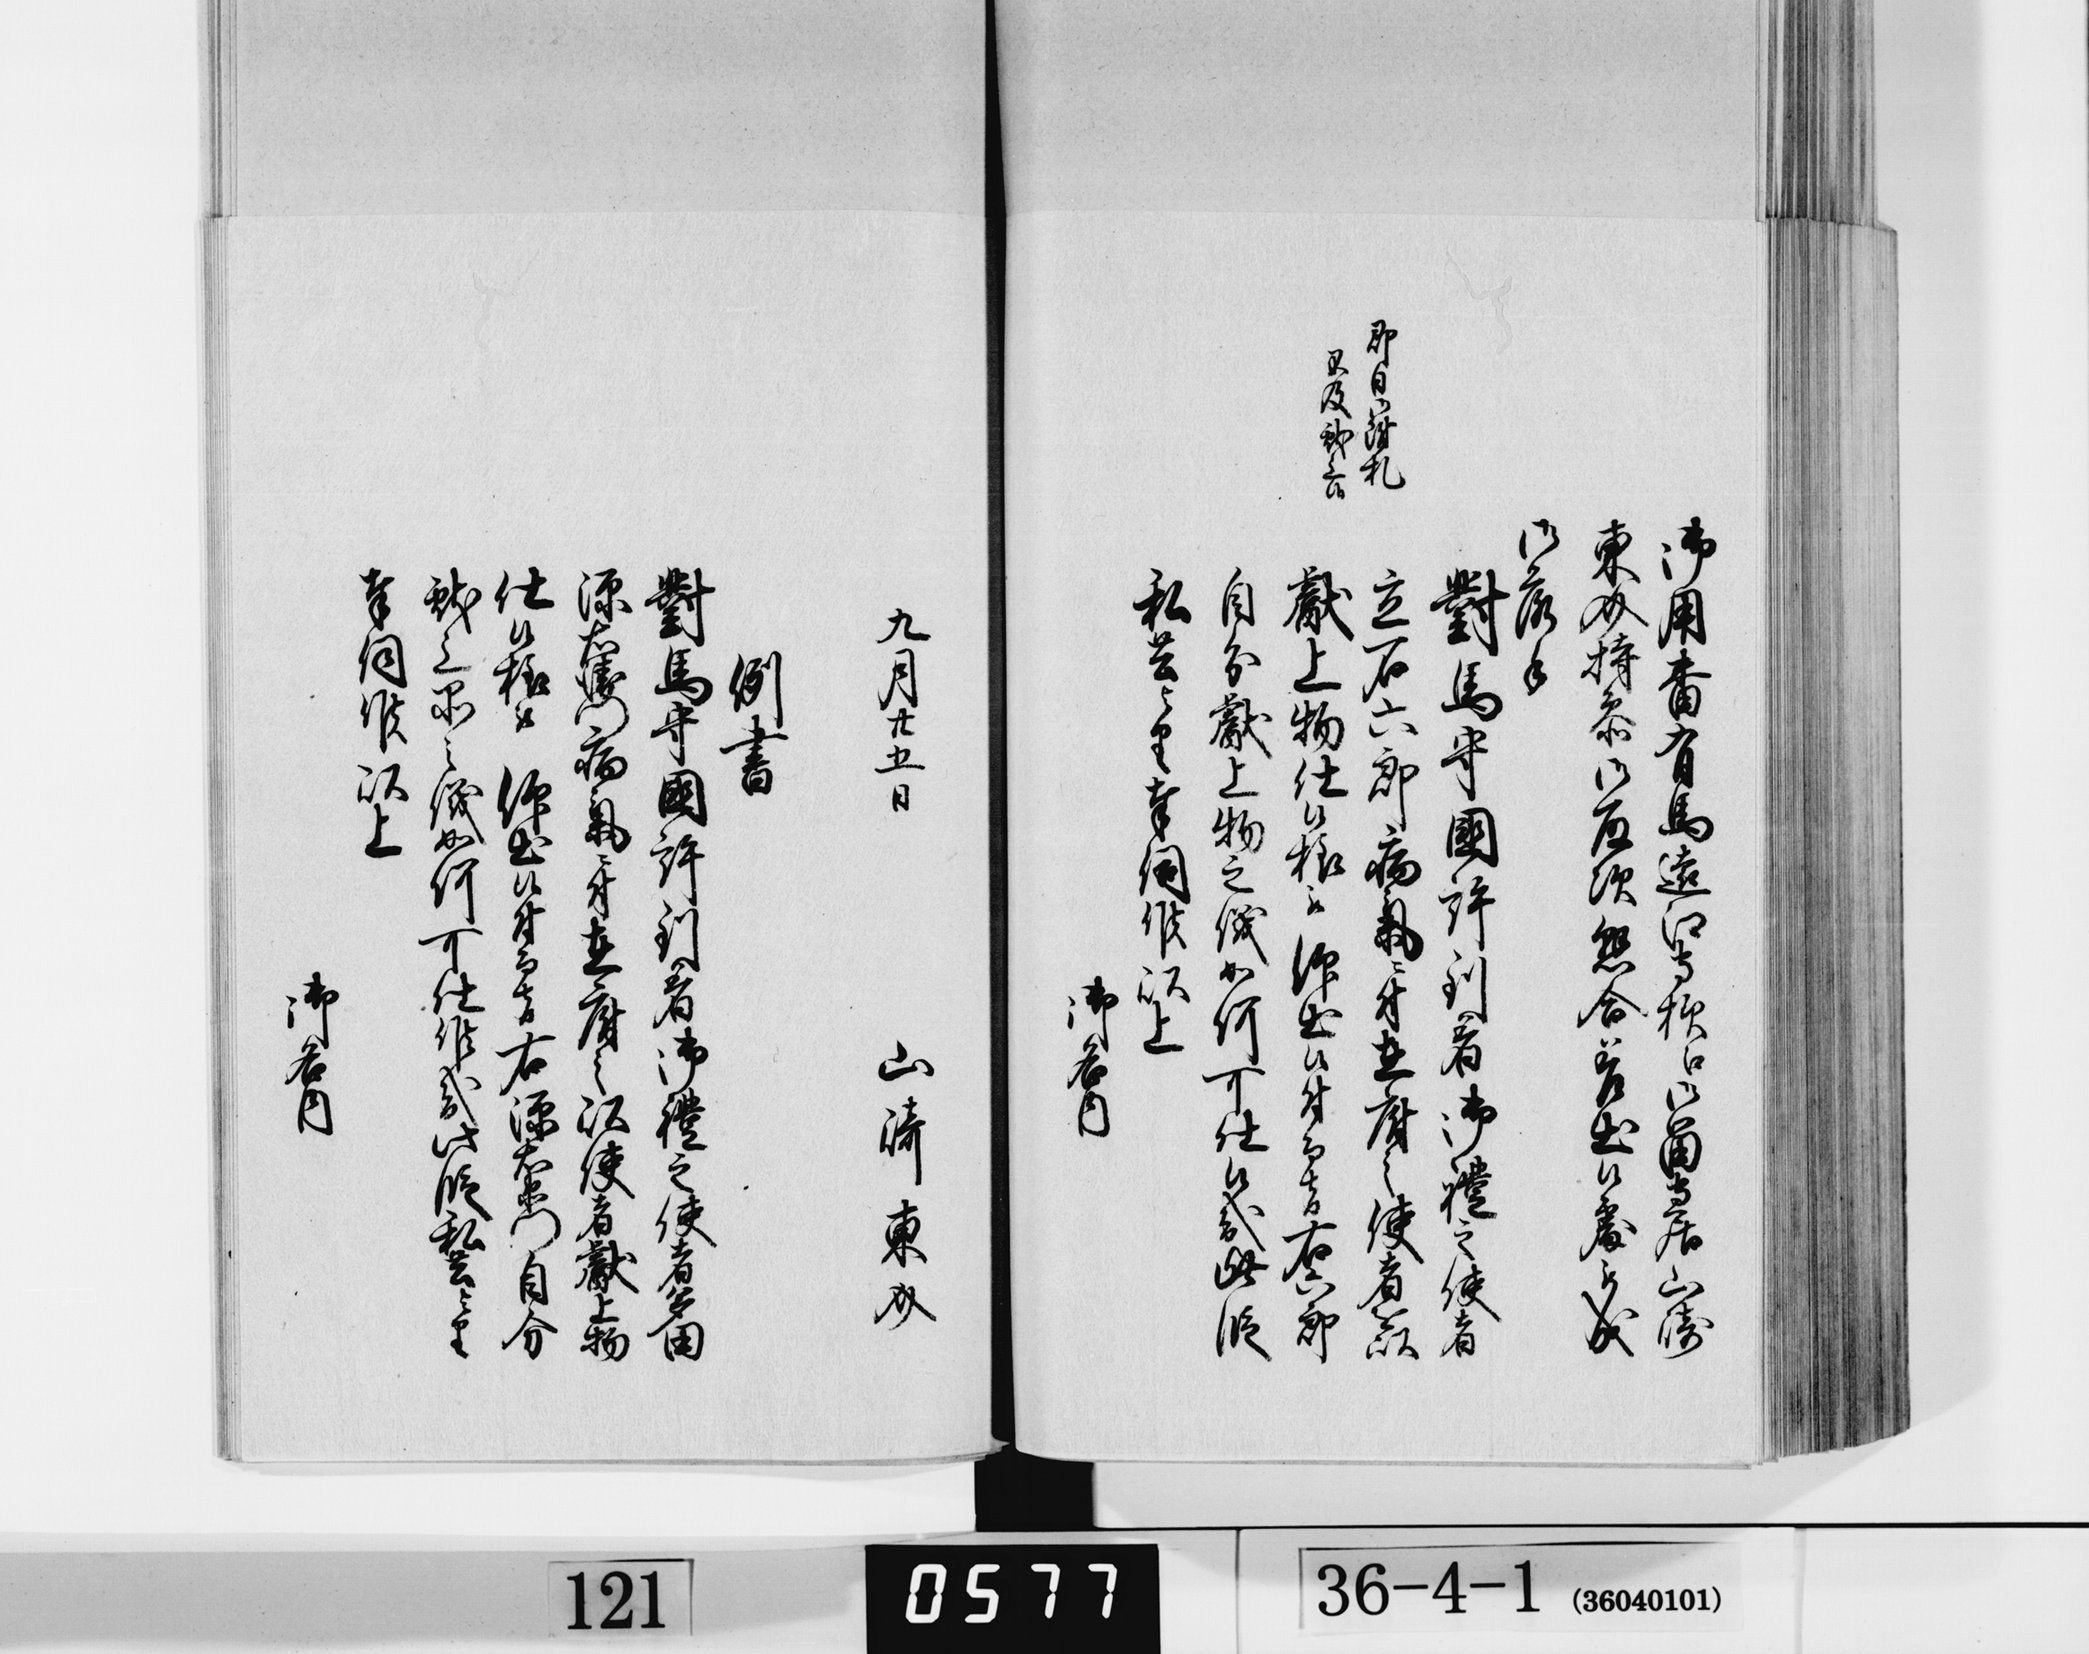 御用番有馬遠江守様江御留守居山崎
東助持参御取次懸合差出候処被成
御落手
即日御附札
不及献上旨
對馬守國許到着御禮之使者
立石六郎病氣ニ付在府之使者ニ而
獻上物仕候様被仰出候付而者右六郎
自分獻上物之儀如何可仕候哉此段
私共ゟ奉伺候以上
御名内
山崎東助
九月廿五日
例書
對馬守國許到着御禮之使者多田
源右衛門病氣ニ付在府之以使者獻上物
仕候様被仰出候付而者右源右衛門自分
献上物之儀如何可仕候哉此段私共ゟ
奉伺候以上
御名内
121
0577
36-4-1 (36040101)